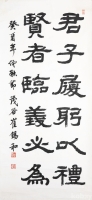 君子履躬以禮
賢者臨義必為
年仲秋節 谷崔錫和